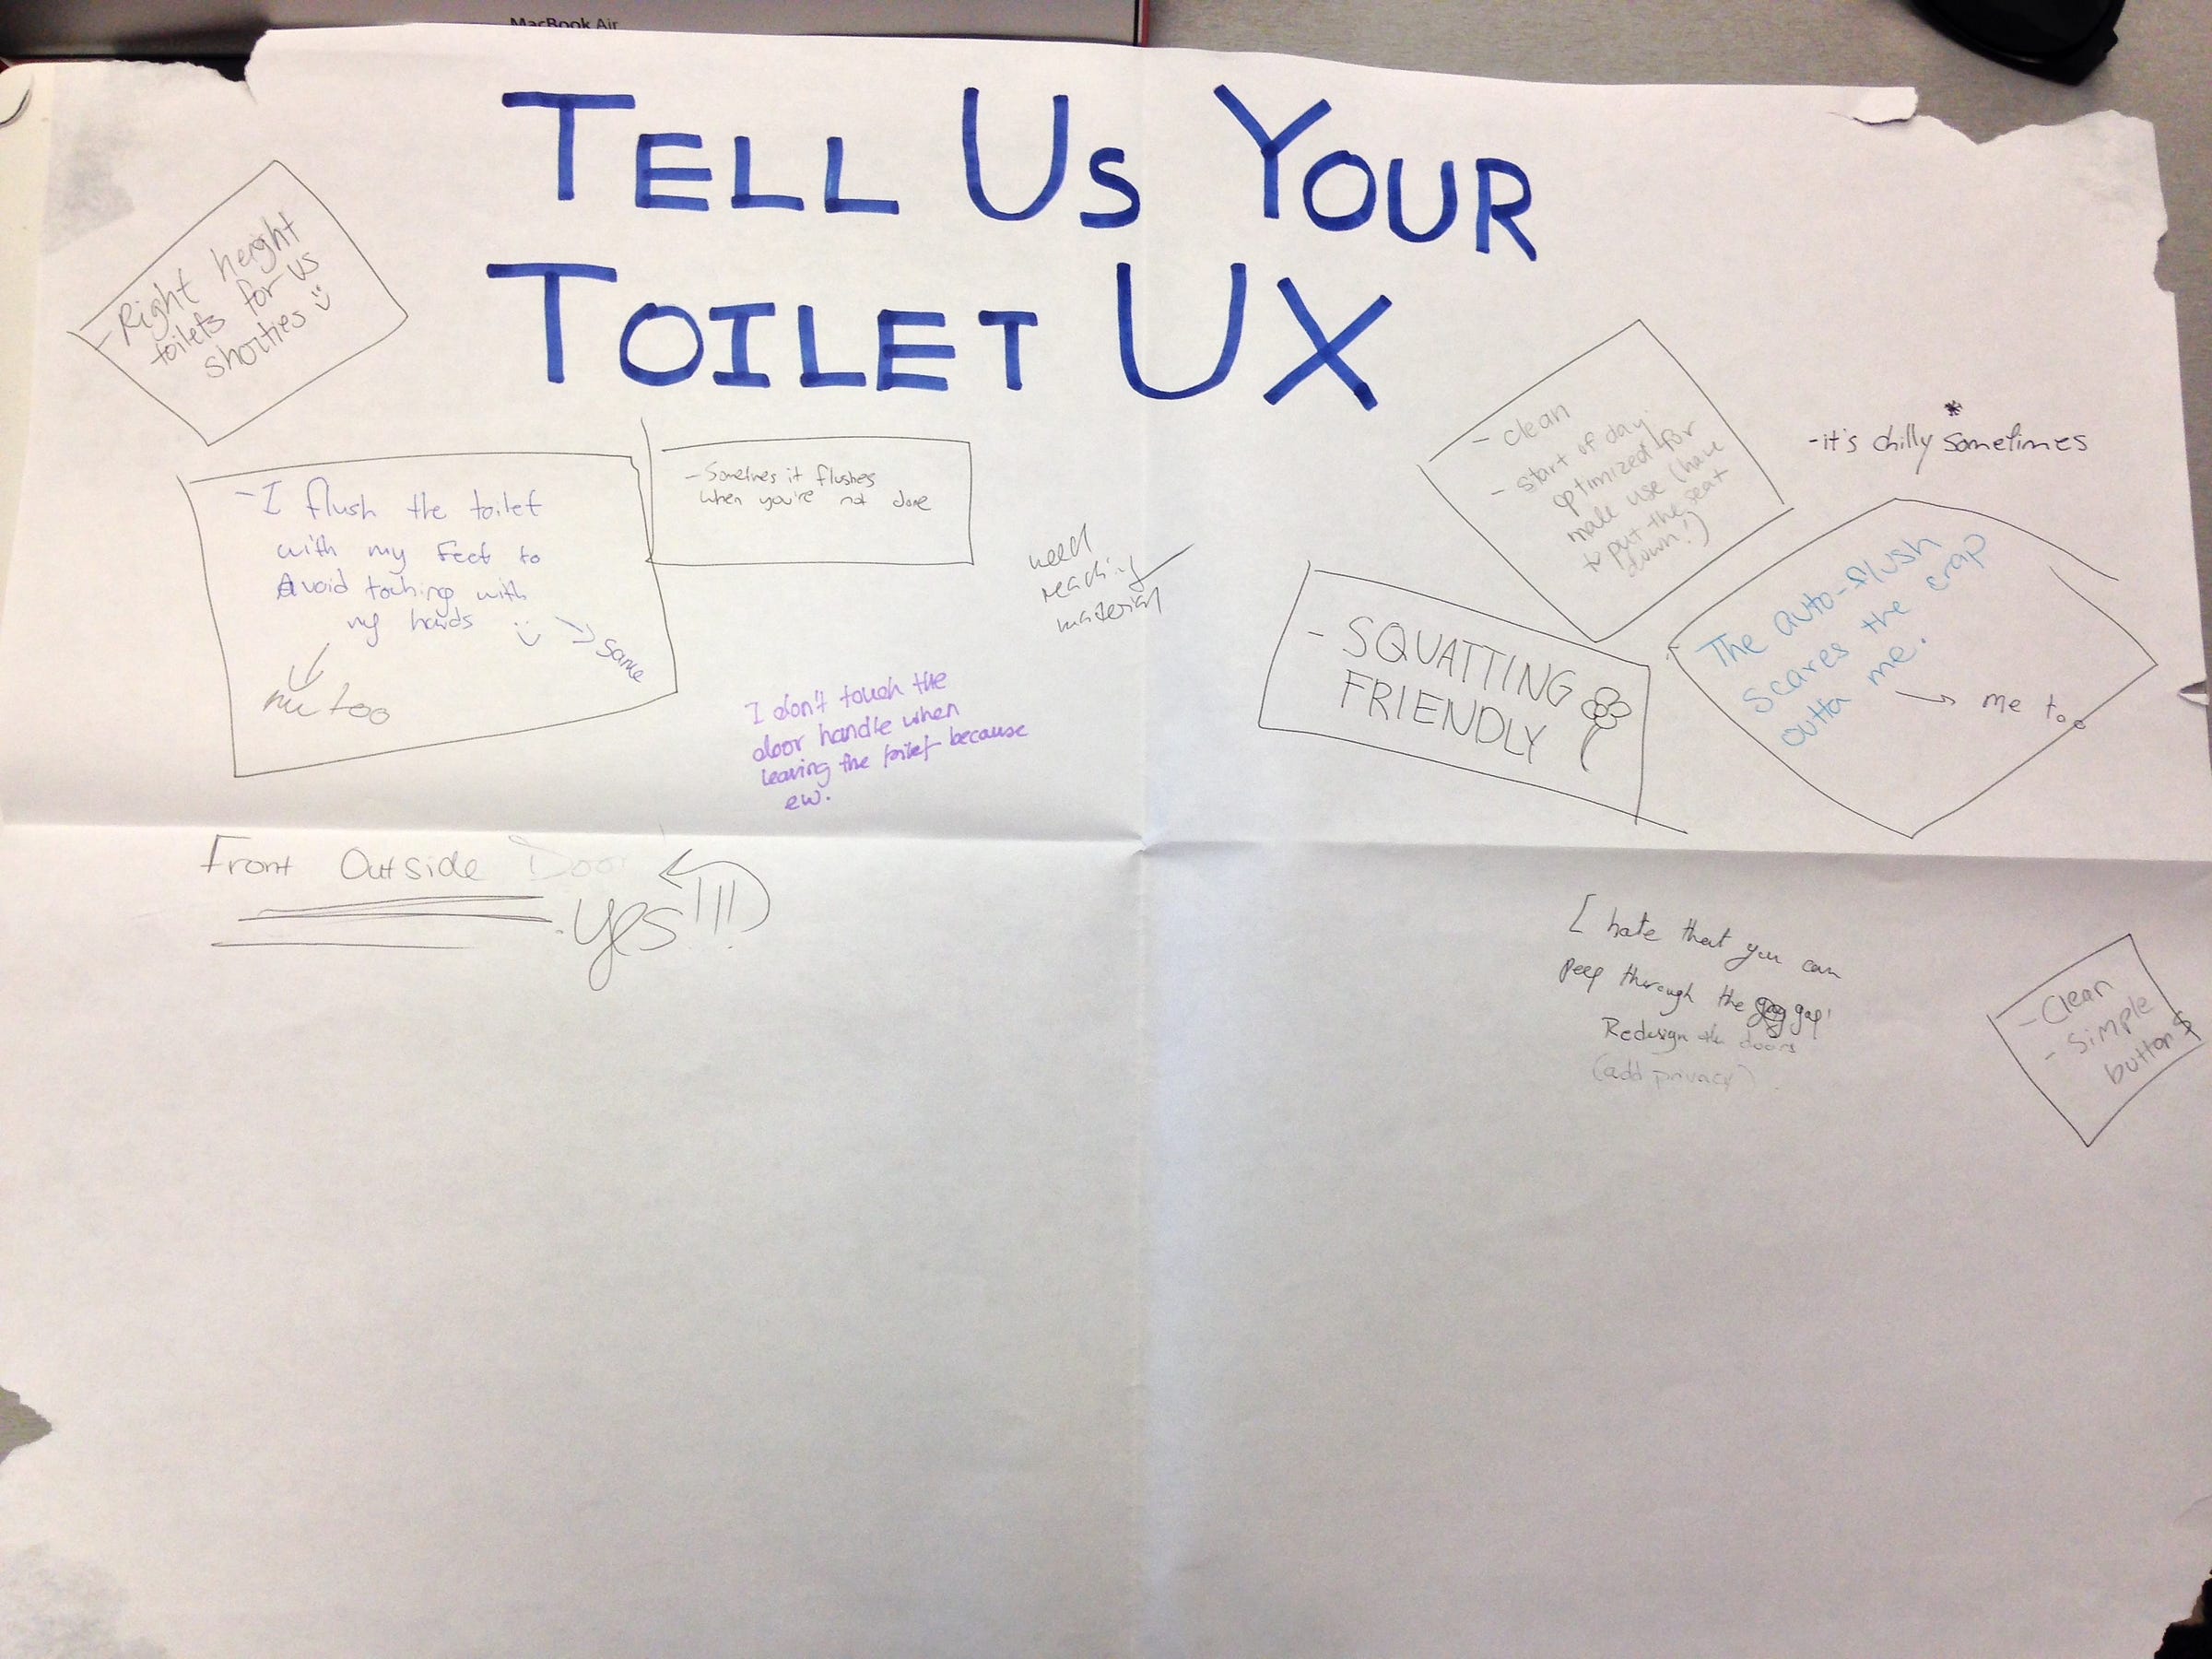 MacBook Air
TELL US YOUR
TOILET UX
- Right height
toilets for us
shorties
- I flush the toilet
with my feet to
Avoid toching with
my hands
same
me too
- Sometimes it flushes
when you're not done
need
reading
material
I don't touch the
door handle when
leaving the toilet because
ew.
- clean
- start of day
optimized for
male use (have
to put the seat
down!)
*
- it's chilly sometimes
- SQUATTING
FRIENDLY
The auto-flush
scares the crap
outta me.
me too
Front Outside Door
yes!!!
I hate that you can
peep through the gap!
Redesign the doors
(add privacy)
- Clean
- Simple
buttons